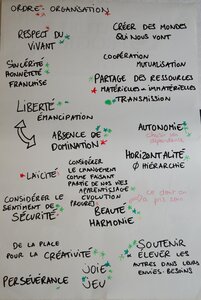 ORDRE - ORGANISATION
RESPECT DU
VIVANT
CRÉER DES MONDES
QUI NOUS VONT
COOPÉRATION
MUTUALISATION
SINCÉRITÉ
HONNÊTETÉ
FRANCHISE
PARTAGE DES RESSOURCES
MATÉRIELLES - IMMATÉRIELLES
TRANSMISSION
LIBERTÉ
ÉMANCIPATION
ABSENCE DE
DOMINATION
AUTONOMIE
dépendance
LAÏCITÉ
CONSIDÉRER
LE CHANGEMENT
COMME FAISANT
PARTIE DE NOS VIES
APPRENTISSAGE
ÉVOLUTION
HORIZONTALITÉ
HIÉRARCHIE
CONSIDÉRER LE
SENTIMENT DE
SÉCURITÉ
BEAUTÉ
HARMONIE
DE LA PLACE
POUR LA CRÉATIVITÉ
SOUTENIR
ÉLEVER LES
AUTRES DANS LEURS
ENVIES - BESOINS
JOIE
JEU
PERSÉVÉRANCE